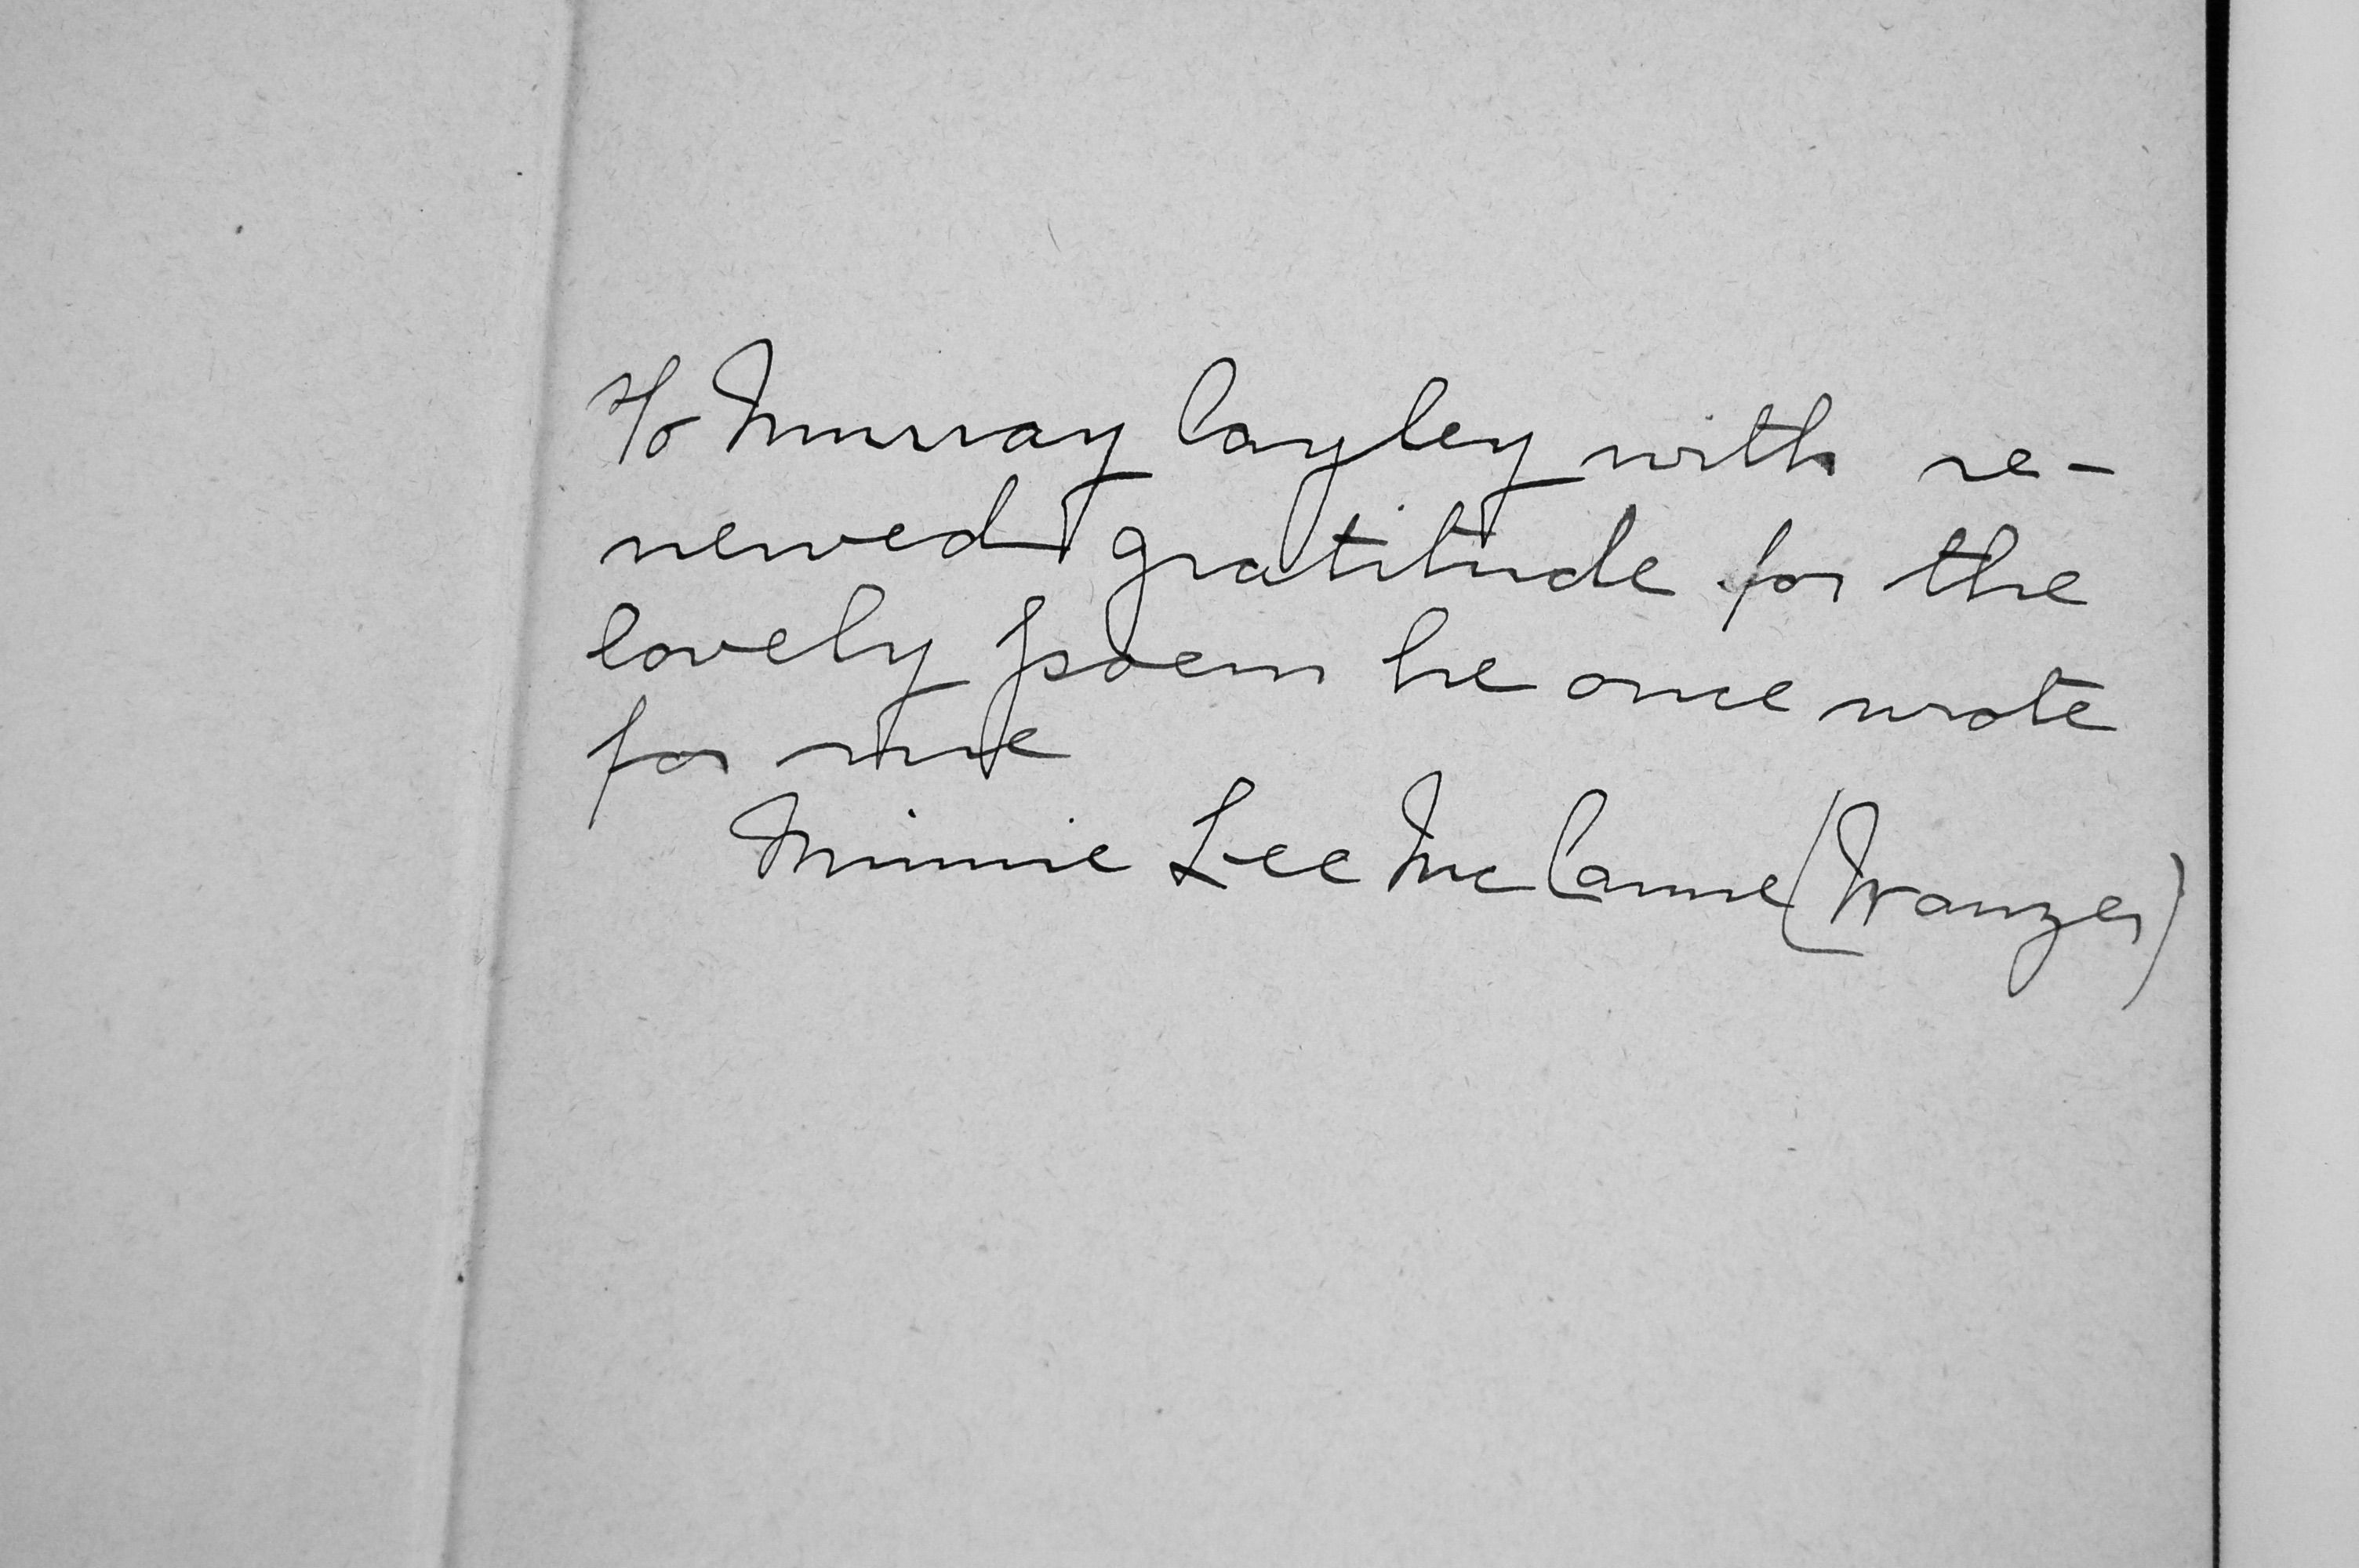 To Murray Cayley with re-
newed gratitude for the
lovely poem he once wrote
for me
Minnie Lee McCanne (Wanzer)